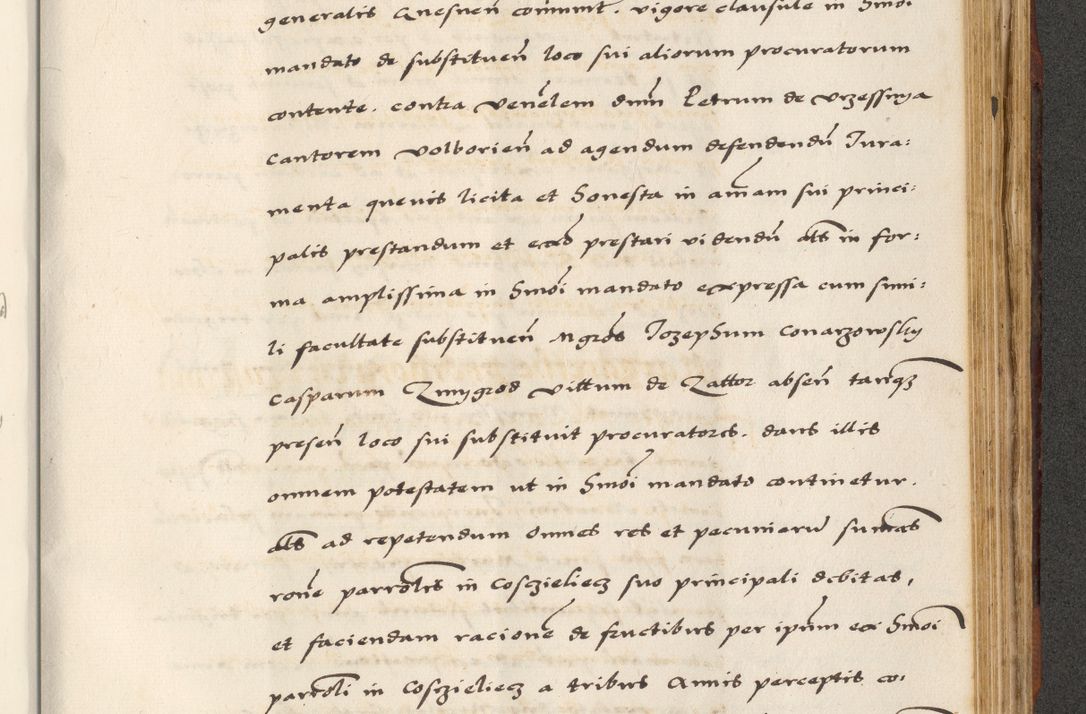 generalis Quesven com̄uni͂t. vigore clausule in Hm̄oi
mandato de substituen̄ loco sui aliorum procuratorum
contente. contra Ven̄elem dnū Petrum de Vrzessinya
Cantorem Volborien̄ ad agendum defendendū Iura:
menta quevis licita et honesta in aīam sui princi:
palis prestandum et ead prestari videndū als in for:
ma amplissima in Hm̄oi mandato expressa cum simi:
li facultate substituen̄ Mgros Iozephum Conarzowsky
Casparum Zmygrod Vittum de Zattor absen̄ tanq̄
presen̄ loco sui substituit procuratores. dans illis
omnem potestatem ut in Hm̄oi mandato continetur.
als ad repetendum omnes res et pecuniarū sum̄as
rōne parrōlis in Cosczieliecz suo principali debitas,
et faciendam racionē de fructibus per ipm̄ ex Hm̄oi
parrōli in Cosczieliecz a tribus Annis perceptis. co: